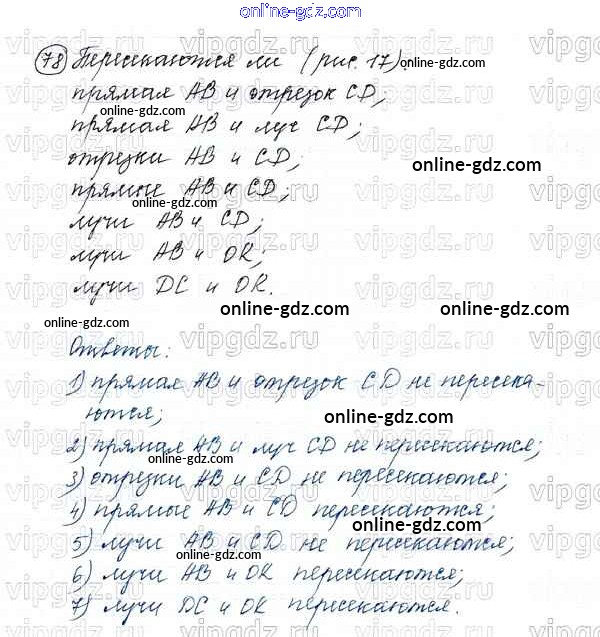 online-gdz.com
78 Пересекаются ли (рис. 17):
online-gdz.com
прямая AB и отрезок CD;
online-gdz.com
прямая AB и луч CD;
отрезки AB и CD;
online-gdz.com
прямые AB и CD;
online-gdz.com
лучи AB и CD;
лучи AB и OK;
online-gdz.com
лучи DC и OK.
online-gdz.com online-gdz.com
online-gdz.com
Ответы:
1) прямая AB и отрезок CD не пересека-
ются;
online-gdz.com
2) прямая AB и луч CD не пересекаются;
online-gdz.com
3) отрезки AB и CD не пересекаются;
4) прямые AB и CD пересекаются;
online-gdz.com
5) лучи AB и CD не пересекаются;
online-gdz.com
6) лучи AB и OK пересекаются;
7) лучи DC и OK пересекаются.
online-gdz.com